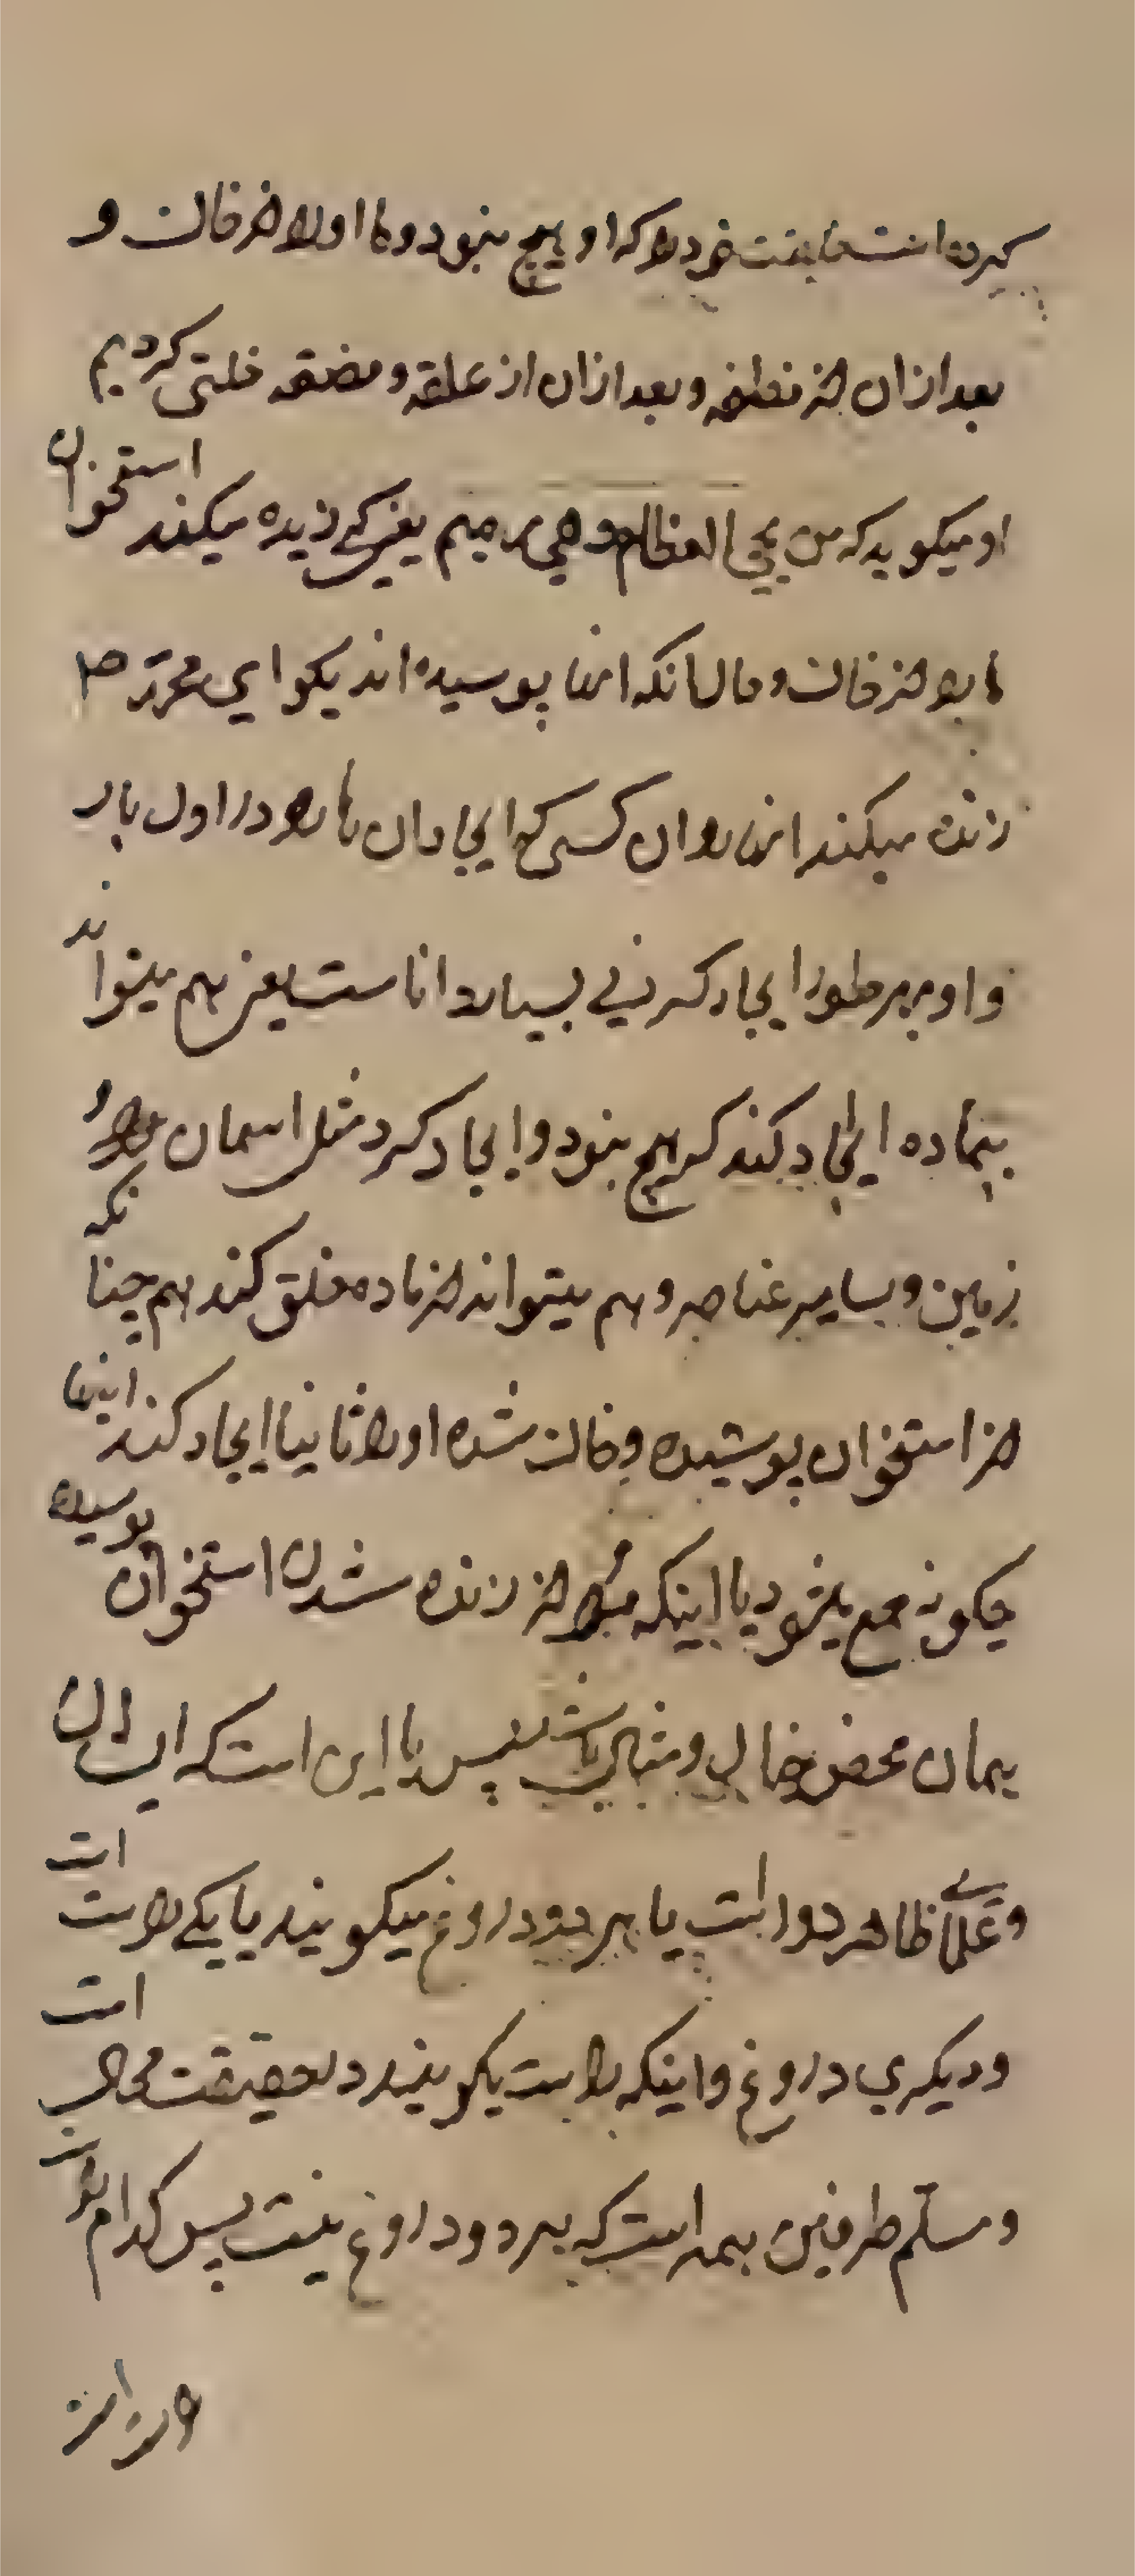 کرده است خلقت خود را که او هیچ نبود و ما او را از خاک و
بعد از ان از نطفه و بعد از ان از علقه و مضغه خلق کردیم
او میکوید که من یحی العظام و هی رمیم یعنی کی زنده میکند استخوان
را از خاک و حال انکه انها پوسیده اند بکو ای محمد ص
زنده میکند انها را ان کسی که ایجاد ان ها را در اول بار
و او بهر طور ایجاد کردنی بسیار داناست یعنی هم میتواند
بیماده ایجاد کند که هیچ نبود و ایجاد کرد مثل اسمان و
زمین و سایر عناصر و هم میتواند از ماده خلق کند هم چنانکه
از استخوان پوشیده و خاک شده او را ثانیا ایجاد کند اینها
چکونه جمع میشود با اینکه مراد از زنده شدن استخوان پوسیده
همان محض خیال و مثال باشد پس با این است که ایشان
و علمای ظاهر دو است یا هر دو دروغ میکویند یا یکی راست است
و دیکری دروغ و اینکه راست یکویند در حقیقت محال است
و مسلم طرفین همه است که هر دو دروغ نیست پس کدام